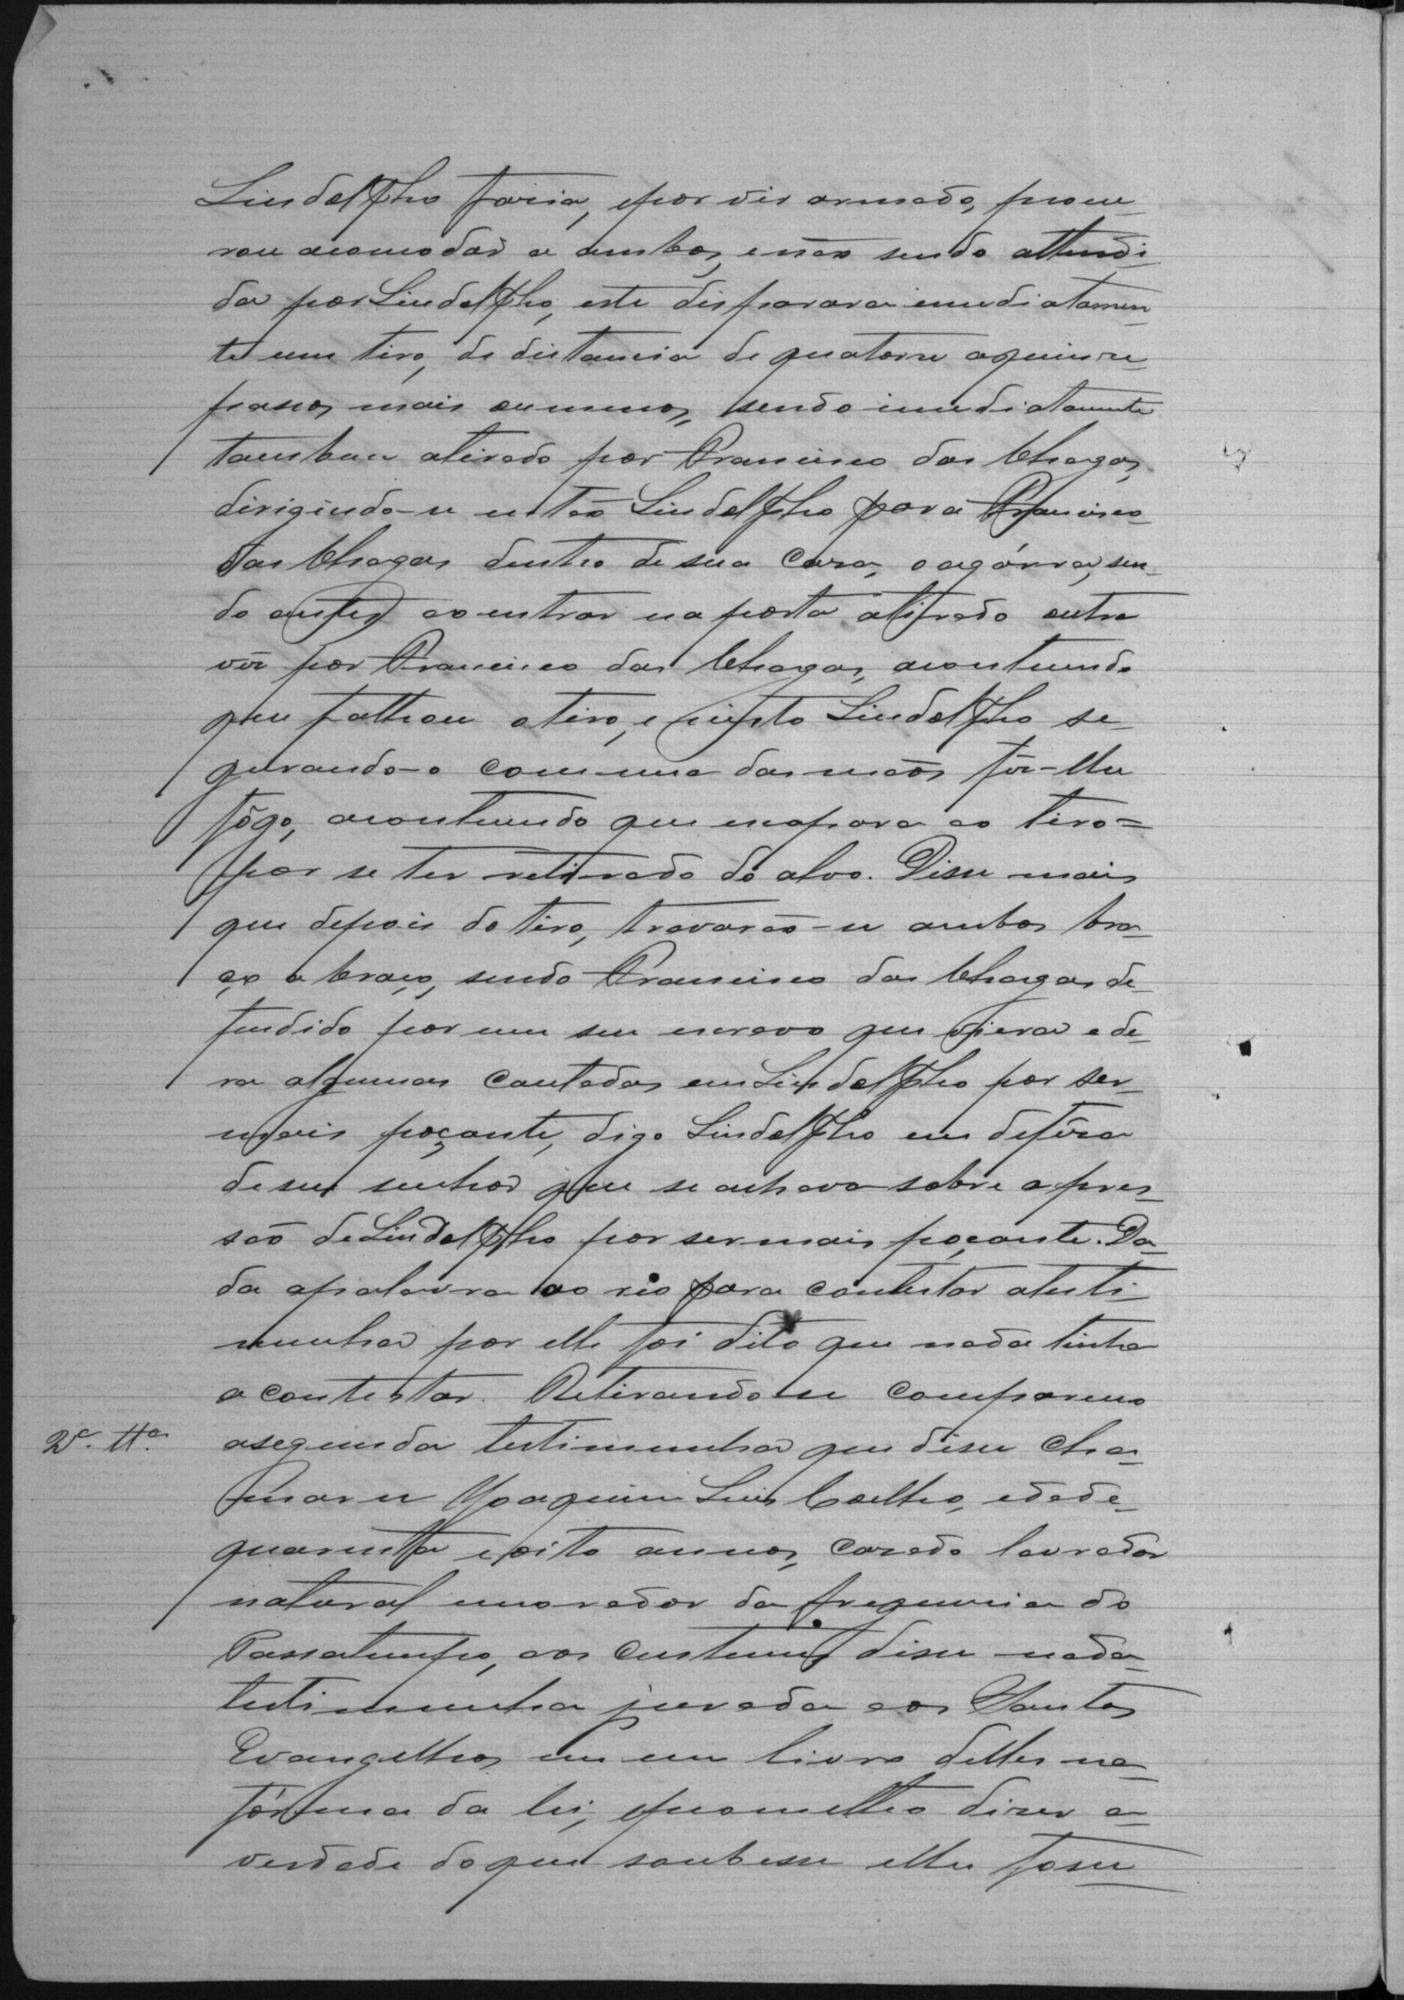 Lindolpho faria, e por vir armado, procu-
rou acomodar a ambos, e não sendo attendi-
da por Lindolpho, este disparara imediatamen-
te um tiro, de distancia de quatorze a quinze
passos mais ou menos, sendo imediatamente
tambem atirado por Francisco das Chagas,
dirigindo-se então Lindolpho para Francisco
das Chagas dentro de sua casa, o agárra, sen-
do antes ao entrar na porta atirado outra
vez por Francisco das Chagas, acontecendo
que falhou o tiro, e nisto Lindolpho se-
gurando-o com uma das mãos fez-lhe
fôgo, acontecendo que escapara ao tiro=
por se ter retirado do alvo. Disse mais
que depois do tiro, travarão-se ambos bra-
ço a braço, sendo Francisco das Chagas de-
fendido por um seu escravo que viera e de-
ra algumas cacetadas em Lindolpho por ser
mais poçante, digo Lindolpho em defêza
de seu senhor que se achava sobre a pres-
são de Lindolpho por ser mais poçante. Da-
da a palavra ao réo para contestar a testi-
munha por elle foi dito que nada tinha
a contestar. Retirando-se compareceu
2ª. Ttª. a segunda testimunha que disse cha-
mar-se Joaquim Luis Coelho, edade
quarenta e oito annos, casado lavrador
natural morador da freguezia do
Passatempo, aos custumes disse nada
testimunha jurada aos Santos
Evangelhos em um livro delles na
fórma da lei, e prometteo dizer a
verdade do que soubesse e lhe fosse